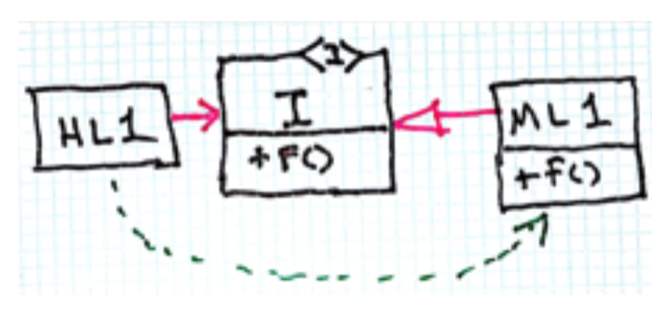 HL1
<I>
I
+F()
ML1
+f()